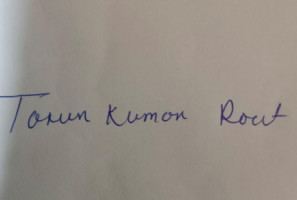 Tarun Kumar Rout